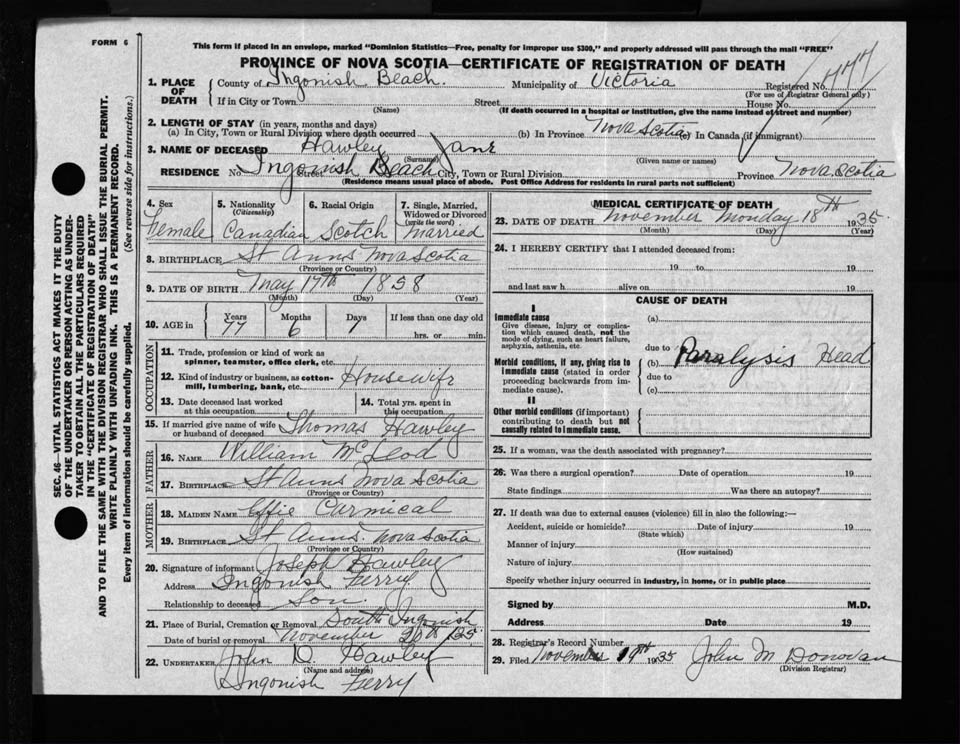 FORM 6
This form if placed in an envelope, marked "Dominion Statistics—Free, penalty for improper use $300," and properly addressed will pass through the mail "FREE"
PROVINCE OF NOVA SCOTIA—CERTIFICATE OF REGISTRATION OF DEATH
1. PLACE OF DEATH County of Ingonish Beach. Municipality of Victoria Registered No.
(For use of Registrar General only)
If in City or Town Street House No.
(Name) (If death occurred in a hospital or institution, give the name instead of street and number)
2. LENGTH OF STAY (in years, months and days)
(a) In City, Town or Rural Division where death occurred (b) In Province Nova Scotia (c) In Canada (if immigrant)
3. NAME OF DECEASED Hawley Jane
(Surname) (Given name or names)
RESIDENCE No. Ingonish Beach Street City, Town or Rural Division Province Nova Scotia
(Residence means usual place of abode. Post Office Address for residents in rural parts not sufficient)
SEC. 46—VITAL STATISTICS ACT MAKES IT THE DUTY
OF THE UNDERTAKER OR PERSON ACTING AS UNDER-
TAKER TO OBTAIN ALL THE PARTICULARS REQUIRED
IN THE "CERTIFICATE OF REGISTRATION OF DEATH"
AND TO FILE THE SAME WITH THE DIVISION REGISTRAR WHO SHALL ISSUE THE BURIAL PERMIT.
WRITE PLAINLY WITH UNFADING INK. THIS IS A PERMANENT RECORD.
Every item of information should be carefully supplied. (See reverse side for instructions.)
4. Sex 5. Nationality (Citizenship) 6. Racial Origin 7. Single, Married, Widowed or Divorced (write the word)
Female Canadian Scotch married
8. BIRTHPLACE St Anns Nova Scotia
(Province or Country)
9. DATE OF BIRTH May 17th 1858
(Month) (Day) (Year)
10. AGE in Years Months Days If less than one day old
77 6 1 hrs. or min.
OCCUPATION
11. Trade, profession or kind of work as
spinner, teamster, office clerk, etc.
12. Kind of industry or business, as cotton-
mill, lumbering, bank, etc. Housewife
13. Date deceased last worked at this occupation 14. Total yrs. spent in this occupation
15. If married give name of wife or husband of deceased Thomas Hawley
FATHER
16. NAME William McLeod
17. BIRTHPLACE St Anns Nova Scotia
(Province or Country)
MOTHER
18. MAIDEN NAME Effie Carmical
19. BIRTHPLACE St Anns. Nova Scotia
(Province or Country)
20. Signature of informant Joseph Hawley
Address Ingonish Ferry.
Relationship to deceased Son.
21. Place of Burial, Cremation or Removal South Ingonish
Date of burial or removal November 20th 1935.
22. UNDERTAKER John D Hawley
(Name and address)
Ingonish Ferry
MEDICAL CERTIFICATE OF DEATH
23. DATE OF DEATH November Monday 18th 1935.
(Month) (Day) (Year)
24. I HEREBY CERTIFY that I attended deceased from:
19 to 19
and last saw h alive on 19
CAUSE OF DEATH
I
Immediate cause (a)
Give disease, injury or complica-
tion which caused death, not the
mode of dying, such as heart failure,
asphyxia, asthenia, etc. due to
Morbid conditions, if any, giving rise to (b) Paralysis Head
immediate cause (stated in order due to
proceeding backwards from im- (c)
mediate cause).
II
Other morbid conditions (if important)
contributing to death but not
causally related to immediate cause.
25. If a woman, was the death associated with pregnancy?
26. Was there a surgical operation? Date of operation 19
State findings Was there an autopsy?
27. If death was due to external causes (violence) fill in also the following:—
Accident, suicide or homicide? Date of injury 19
(State which)
Manner of injury
(How sustained)
Nature of injury
Specify whether injury occurred in industry, in home, or in public place
Signed by M.D.
Address Date 19
28. Registrar's Record Number
29. Filed November 19th 1935 John M Donovan
(Division Registrar)